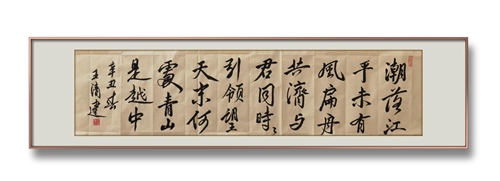 潮落江
平未有
風扁舟
共濟与
君同時々
引領望
天末何
處青山
是越中
辛丑春
王清建